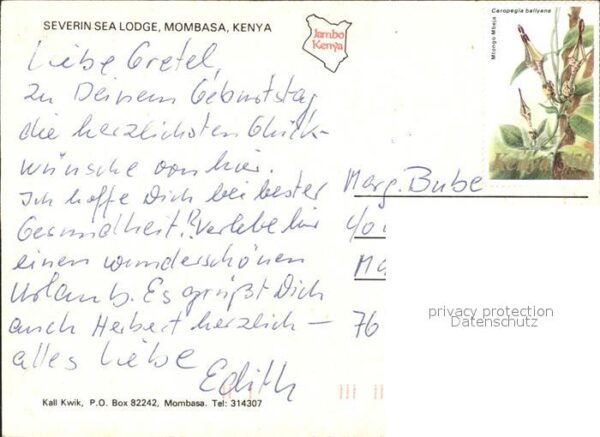 SEVERIN SEA LODGE, MOMBASA, KENYA
Jambo
Kenya
Ceropegia ballyana
Mtongo Mbeja
Liebe Gretel,
zu Deinem Geburtstag
die herzlichsten Glück-
wünsche von hier.
Ich hoffe Dich bei bester
Gesundheit. Verlebe hier
einen wunderschönen
Urlaub. Es grüßt Dich
auch Herbert herzlich –
alles Liebe
Edith
Marg. Bube
c/o
Ma
76
privacy protection
Datenschutz
Kali Kwik, P.O. Box 82242, Mombasa. Tel: 314307